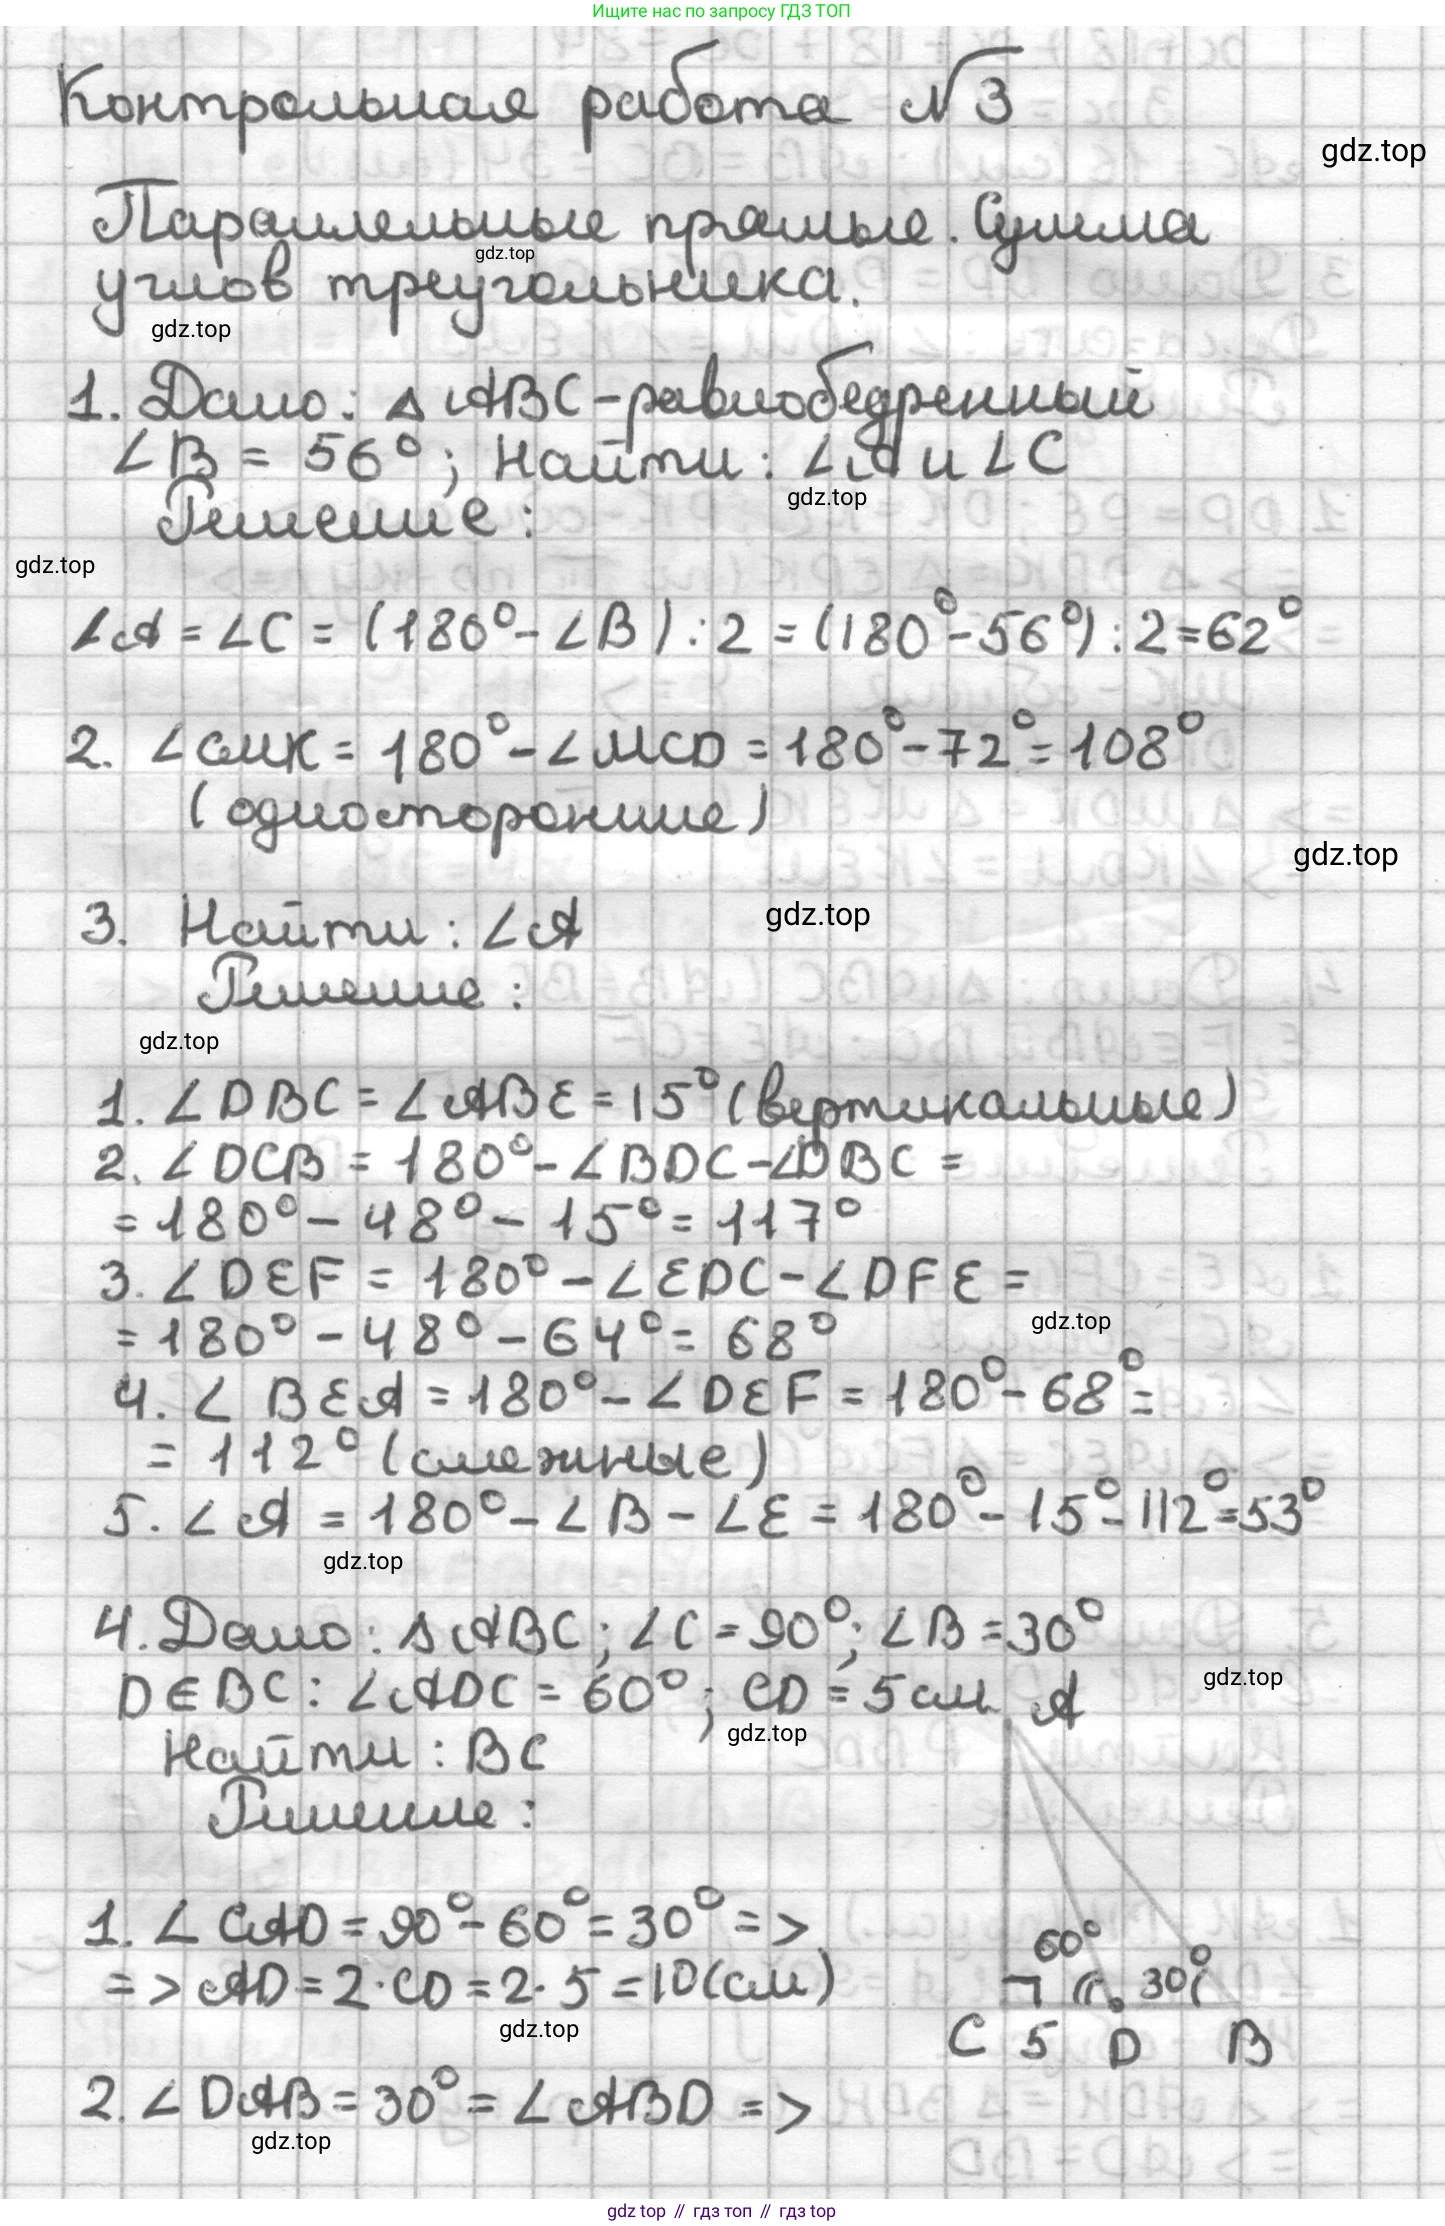 Ищите нас по запросу ГДЗ ТОП
Контрольная работа №3
gdz.top
Параллельные прямые. Сумма
gdz.top
углов треугольника.
gdz.top
1. Дано: △ABC-равнобедренный
∠B = 56°; Найти: ∠A и ∠C
gdz.top
Решение:
gdz.top
∠A = ∠C = (180° - ∠B) : 2 = (180° - 56°) : 2 = 62°
2. ∠CMK = 180° - ∠MCD = 180° - 72° = 108°
(односторонние)
gdz.top
3. Найти: ∠A
gdz.top
Решение:
gdz.top
1. ∠DBC = ∠ABE = 15° (вертикальные)
2. ∠DCB = 180° - ∠BDC - ∠DBC =
= 180° - 48° - 15° = 117°
3. ∠DEF = 180° - ∠EDC - ∠DFE =
gdz.top
= 180° - 48° - 64° = 68°
4. ∠BEA = 180° - ∠DEF = 180° - 68° =
= 112° (смежные)
5. ∠A = 180° - ∠B - ∠E = 180° - 15° - 112° = 53°
gdz.top
4. Дано: △ABC; ∠C = 90°; ∠B = 30°
gdz.top
D∈BC: ∠ADC = 60°; CD = 5см
A
gdz.top
Найти: BC
Решение:
1. ∠CAD = 90° - 60° = 30° =>
60°
=> AD = 2·CD = 2·5 = 10(см)
30°
gdz.top
C 5 D B
2. ∠DAB = 30° = ∠ABD =>
gdz.top
gdz top // гдз топ // gdz top